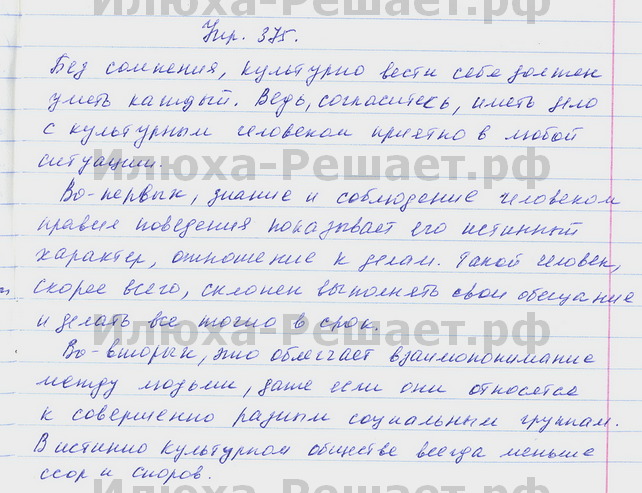 Илюха-Решает.рф
Упр. 375.
Без сомнения, культурно вести себя должен
уметь каждый. Ведь, согласитесь, иметь дело
с культурным человеком приятно в любой
ситуации.
Илюха-Решает.рф
Во-первых, знание и соблюдение человеком
правил поведения показывает его истинный
характер, отношение к делам. Такой человек,
скорее всего, склонен выполнять свои обещание
и делать все точно в срок.
Илюха-Решает.рф
Во-вторых, это облегчает взаимопонимание
между людьми, даже если они относятся
к совершенно разным социальным группам.
В истинно культурном обществе всегда меньше
ссор и споров.
Илюха-Решает.рф